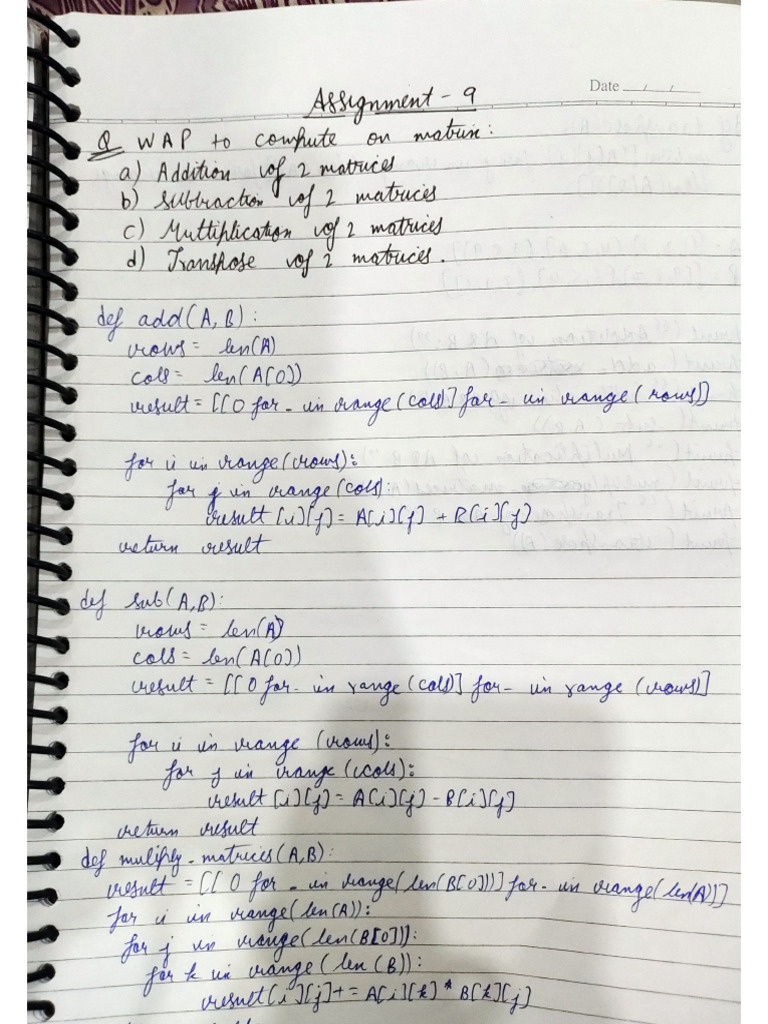 Date __/__/__
Assignment - 9
Q WAP to compute on matrix:
a) Addition of 2 matrices
b) Subtraction of 2 matrices
c) Multiplication of 2 matrices
d) Transpose of 2 matrices.
def add(A,B):
rows = len(A)
cols = len(A[0])
result = [[0 for _ in range(cols)] for _ in range(rows)]
for i in range(rows):
for j in range(cols):
result[i][j] = A[i][j] + B[i][j]
return result
def sub(A,B):
rows = len(A)
cols = len(A[0])
result = [[0 for _ in range(cols)] for _ in range(rows)]
for i in range(rows):
for j in range(cols):
result[i][j] = A[i][j] - B[i][j]
return result
def muliply_matrices(A,B):
result = [[0 for _ in range(len(B[0]))] for _ in range(len(A))]
for i in range(len(A)):
for j in range(len(B[0])):
for k in range(len(B)):
result[i][j] += A[i][k] * B[k][j]